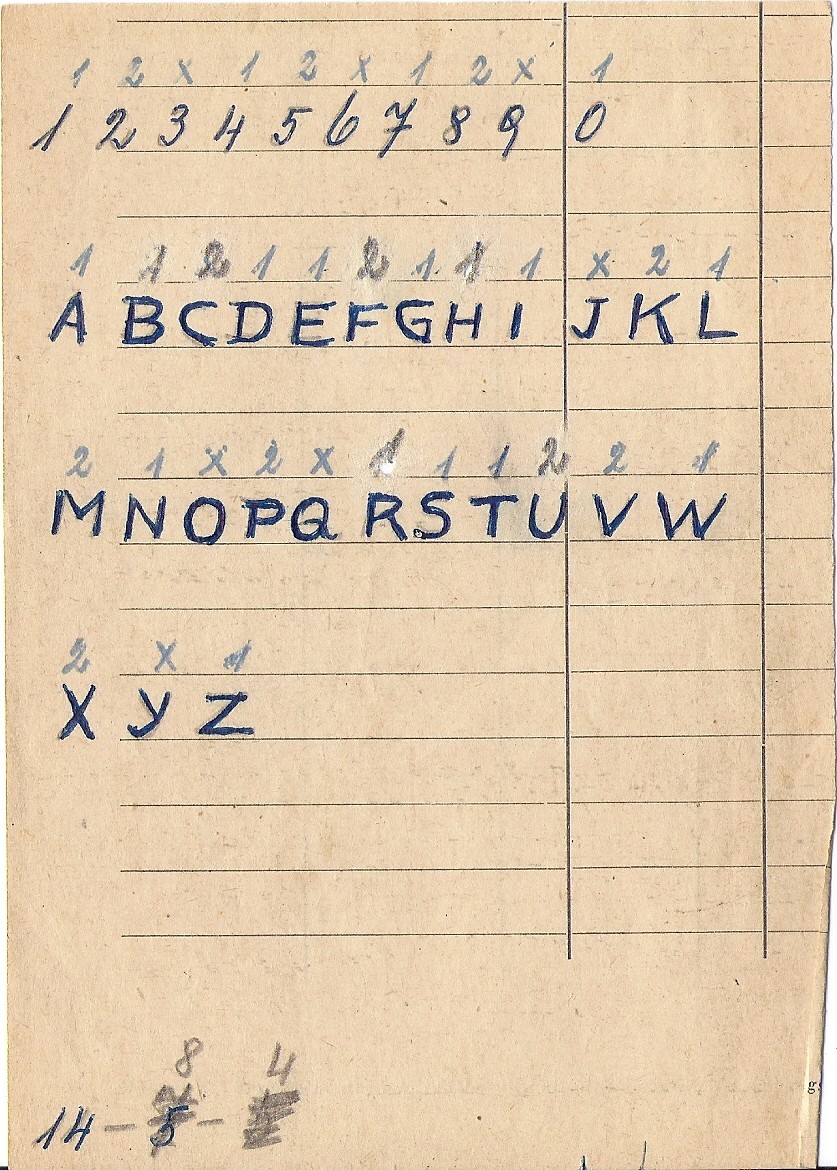 1 2 x 1 2 x 1 2 x 1
1 2 3 4 5 6 7 8 9 0
1 1 2 1 1 2 1 1 1 x 2 1
A B C D E F G H I J K L
2 1 x 2 x 1 1 1 2 2 1
M N O P Q R S T U V W
2 x 1
X Y Z
8 4
14 - 5 -